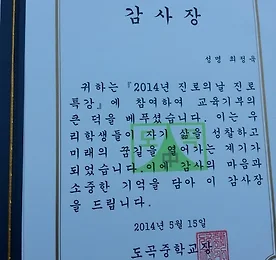 감사장
성명 최정욱
귀하는『2014년 진로의날 진로
특강』에 참여하여 교육기부의
큰 덕을 베푸셨습니다. 이는 우
리학생들이 자기 삶을 성찰하고
미래의 꿈길을 열어가는 계기가
되었습니다. 이에 감사의 마음과
소중한 기억을 담아 이 감사장
을 드립니다.
2014년 5월 15일
도곡중학교장